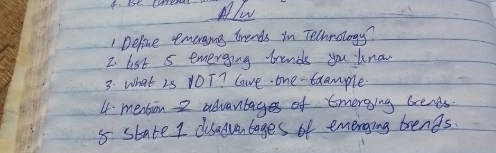 A/W
1. Define emerging trends in Technology?
2. list 5 emerging trends you know
3. what is IOT? Give one Example.
4. mention 2 advantages of Emerging trends.
5. State 1 disadvantages of emerging trends.